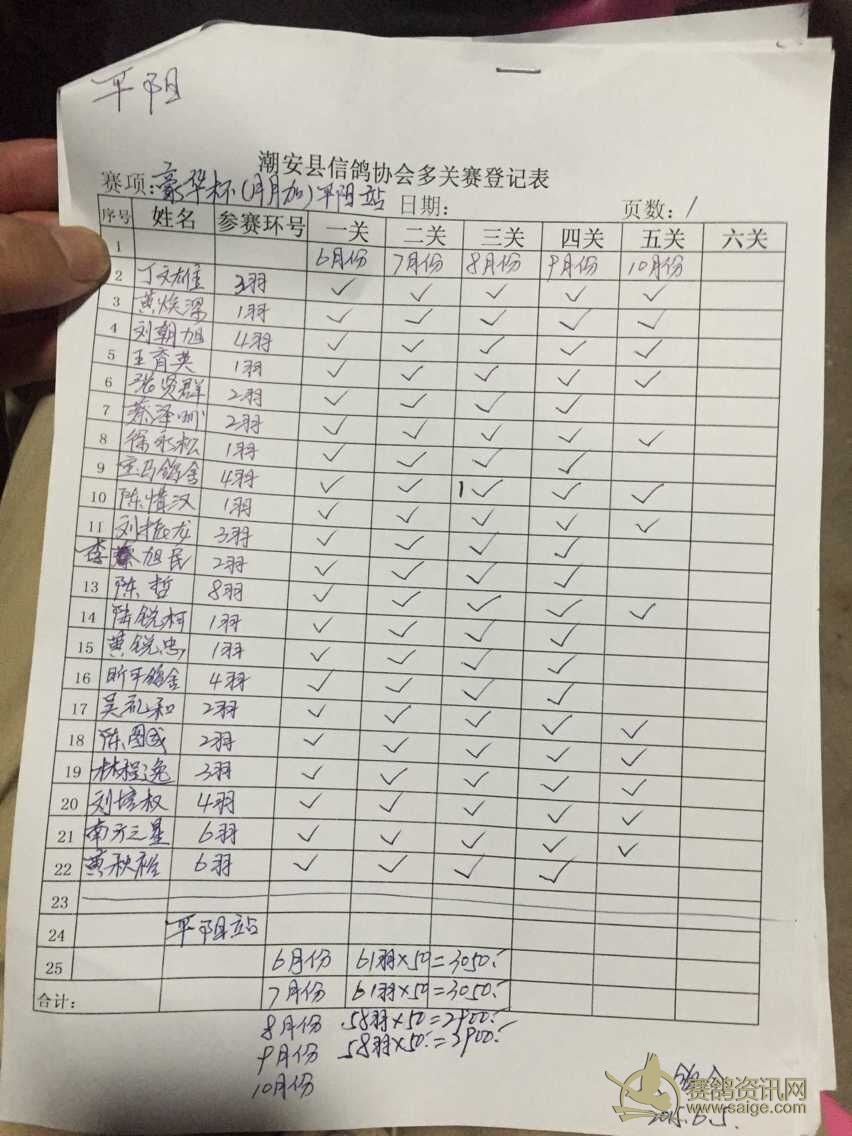 平阳
潮安县信鸽协会多关赛登记表
赛项:豪华杯(月月加)平阳站 日期: 页数:1
序号 姓名 参赛环号 一关 二关 三关 四关 五关 六关
1 6月份 7月份 8月份 9月份 10月份
2 丁文雄 3羽 ✓ ✓ ✓ ✓ ✓
3 黄焕深 1羽 ✓ ✓ ✓ ✓ ✓
4 刘朝旭 4羽 ✓ ✓ ✓ ✓ ✓
5 王育英 1羽 ✓ ✓ ✓ ✓ ✓
6 张贤群 2羽 ✓ ✓ ✓ ✓
7 蔡泽 2羽 ✓ ✓ ✓ ✓ ✓
8 徐永松 1羽 ✓ ✓ ✓ ✓
9 宝马鸽舍 4羽 ✓ ✓ 1✓ ✓ ✓
10 陈惜汉 1羽 ✓ ✓ ✓ ✓ ✓
11 刘振龙 3羽 ✓ ✓ ✓ ✓
李旭民 2羽 ✓ ✓ ✓ ✓
13 陈哲 8羽 ✓ ✓ ✓ ✓ ✓
14 陆锐柯 1羽 ✓ ✓ ✓ ✓
15 黄锐忠 1羽 ✓ ✓ ✓ ✓
16 昕平鸽舍 4羽 ✓ ✓ ✓ ✓
17 吴礼和 2羽 ✓ ✓ ✓ ✓ ✓
18 陈图 2羽 ✓ ✓ ✓ ✓ ✓
19 林程逸 3羽 ✓ ✓ ✓ ✓ ✓
20 刘培权 4羽 ✓ ✓ ✓ ✓ ✓
21 南方之星 6羽 ✓ ✓ ✓ ✓ ✓
22 黄秋裕 6羽 ✓ ✓ ✓ ✓
23
24 平阳站
25 6月份 61羽×50=3050.-
合计: 7月份 61羽×50=3050.-
8月份 58羽×50=2900.-
9月份 58羽×50.=2900.-
10月份
赛鸽资讯网
www.saige.com
2015.6.5.